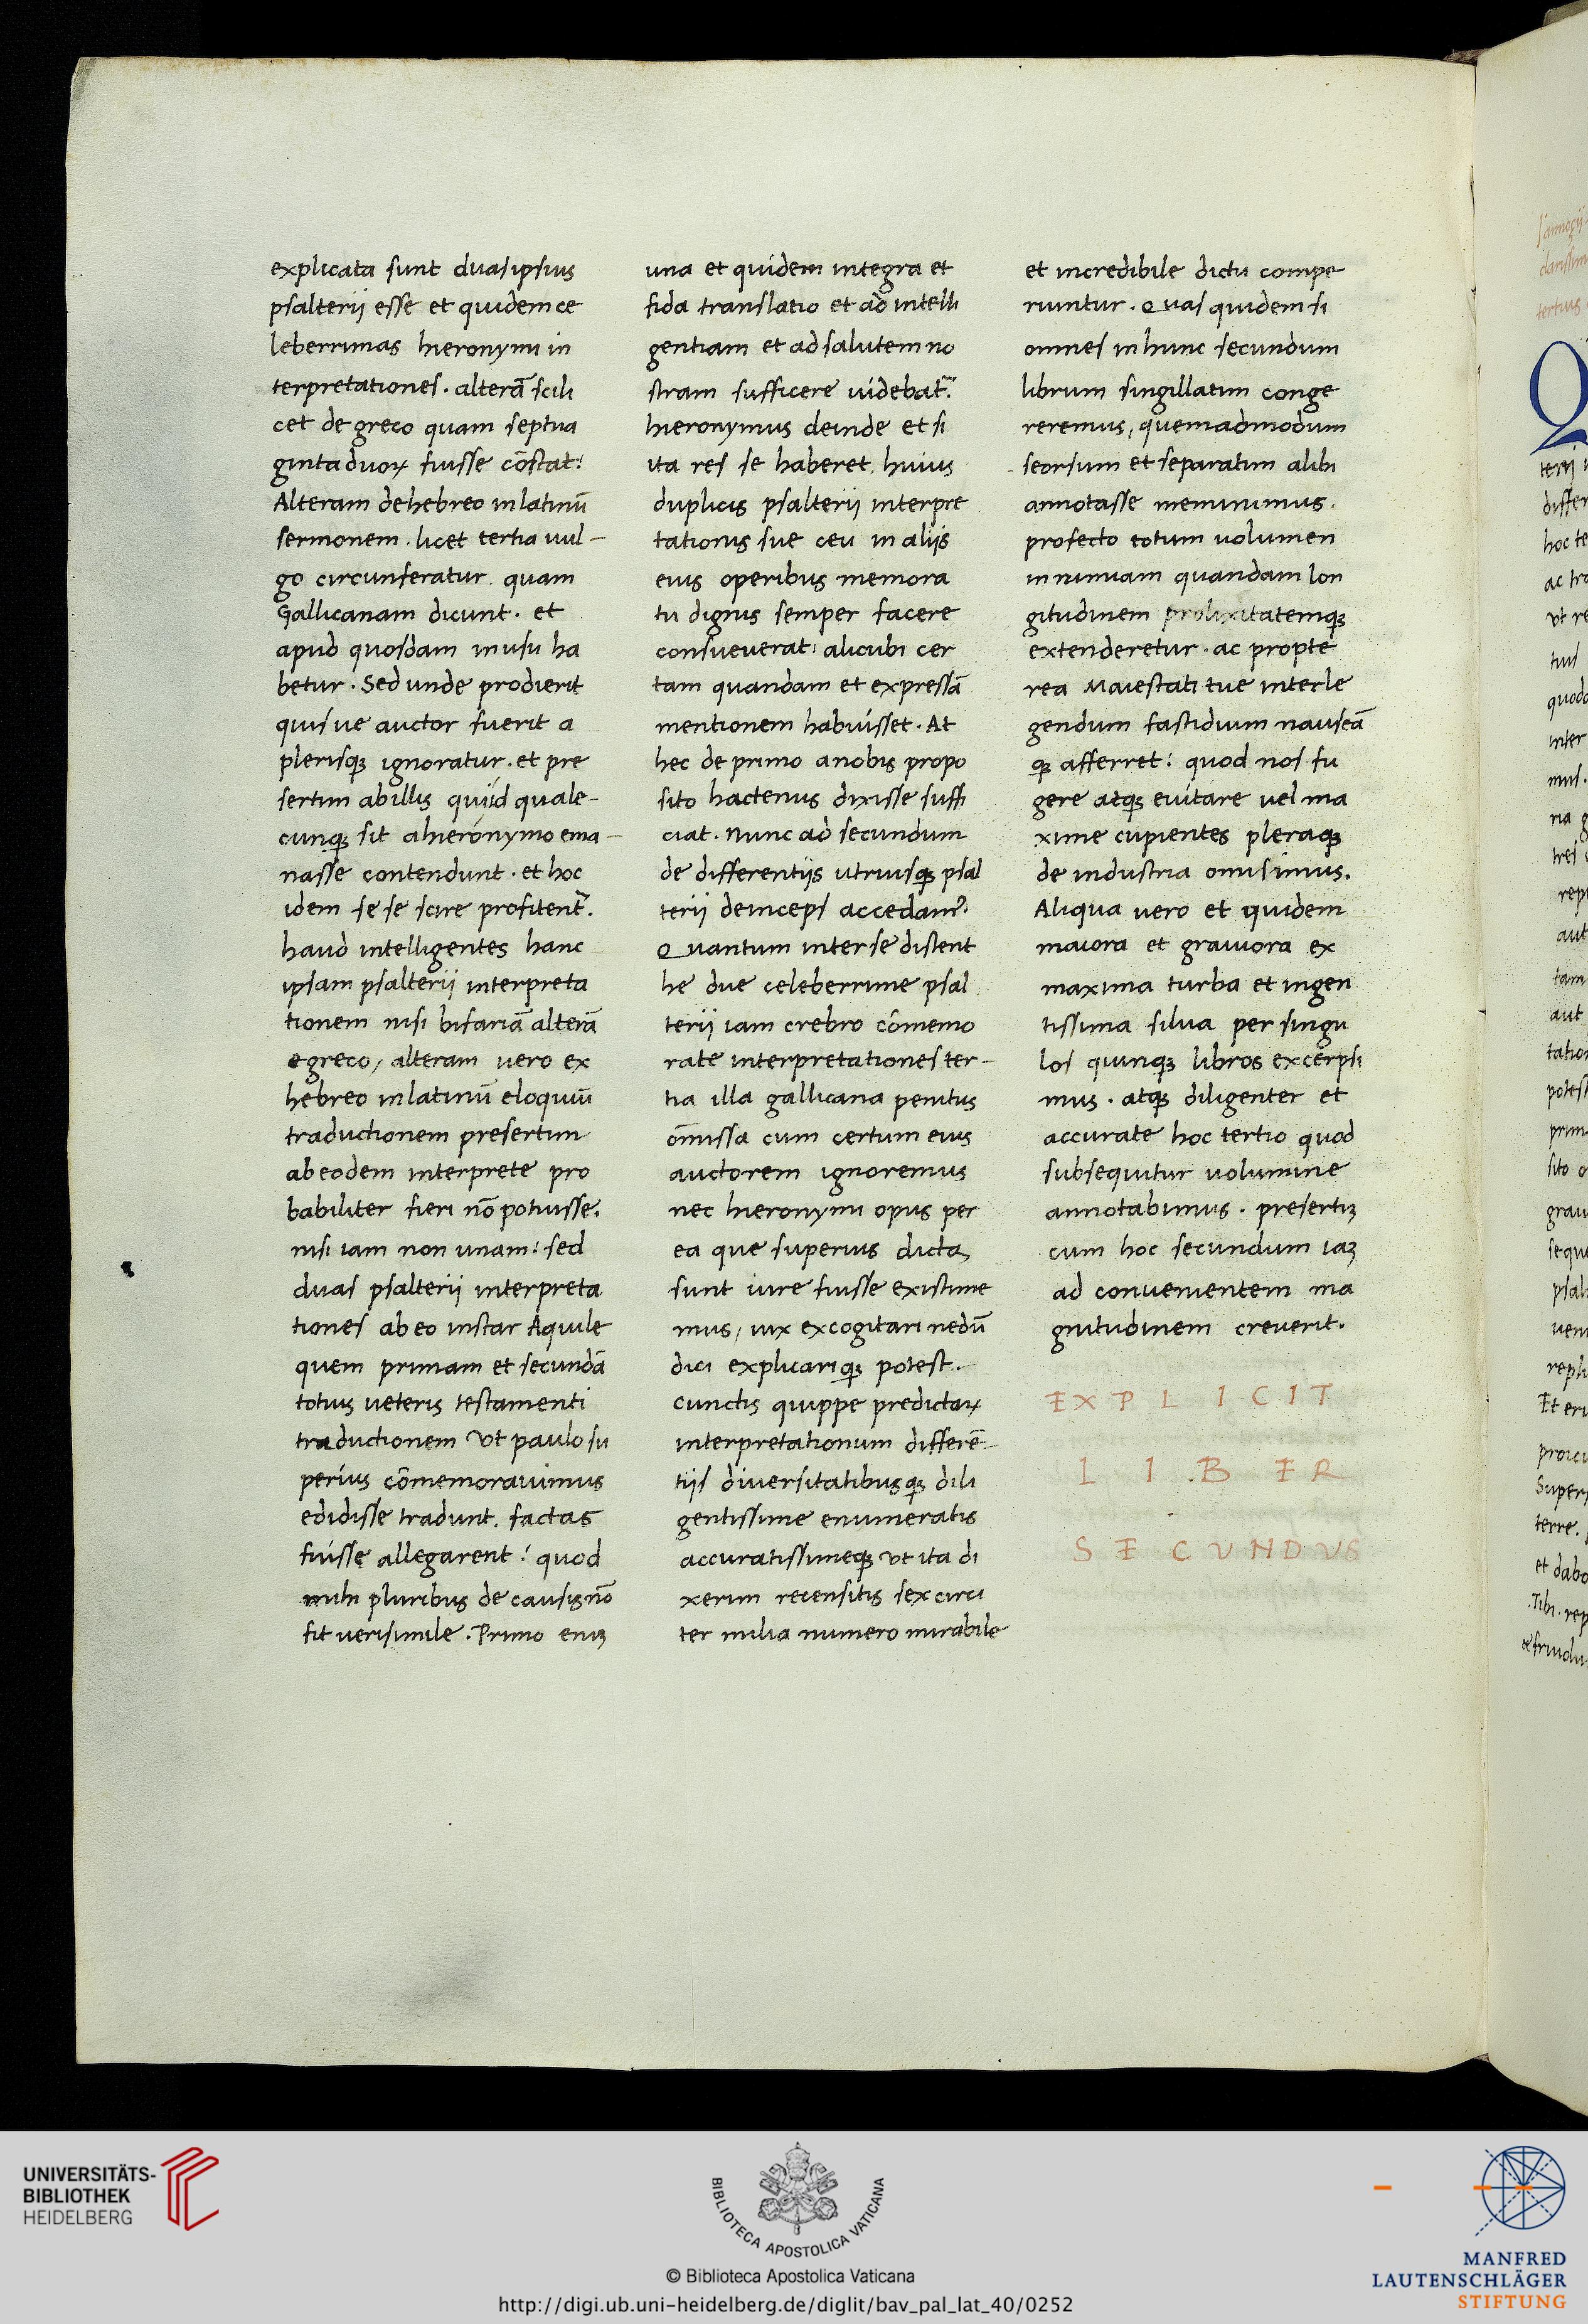 explicata sunt duas ipsius
psalterii esse et quidem ce
leberrimas hieronymi in
terpretationes. alterã scili
cet de greco quam septua
ginta duoꝝ fuisse cõstat:
Alteram de hebreo in latinũ
sermonem. licet tertia uul-
go circunferatur. quam
Gallicanam dicunt. et
apud quosdam in usu ha
betur. Sed unde prodierit
quis ue auctor fuerit a
plerisqꝫ ignoratur. et pre
sertim ab illis quiid quale-
cunqꝫ sit a hierónymo ema-
nasse contendunt. et hoc
idem se se scire profitent᷑.
haud intelligentes hanc
ipsam psalterii interpreta
tionem nisi bifariã alterã
e greco, alteram uero ex
hebreo in latinũ eloquiũ
traductionem presertim
ab eodem interprete pro
babiliter fieri nõ potuisse.
nisi iam non unam: sed
duas psalterii interpreta
tiones ab eo instar Aquile
quem primam et secundã
totius ueteris testamenti
traductionem vt paulo su
perius cõmemorauimus
edidisse tradunt. factas
fuisse allegarent: quod
mihi pluribus de causis nõ
fit uerisimile. Primo eniꝫ
una et quidem integra et
fida translatio et ad intelli
gentiam et ad salutem no
stram sufficere uidebat᷑.
hieronymus deinde et si
ita res se haberet. huius
duplicis psalterii interpre
tationis sue ceu in aliis
eius operibus memora
tu dignis semper facere
consueuerat: alicubi cer
tam quandam et expressã
mentionem habuisset. At
hec de primo a nobis propo
sito hactenus dixisse suffi
ciat. Nunc ad secundum
de differentiis utriusqꝫ psal
terii deinceps accedam᷒.
Quantum inter se distent
he due celeberrime psal
terii iam crebro cõmemo
rate interpretationes ter-
tia illa gallicana penitus
omissa cum certum eius
auctorem ignoremus
nec hieronymi opus per
ea que superius dicta
sunt iure fuisse existime
mus, uix excogitari nedũ
dici explicariqꝫ potest.
Cunctis quippe predictaꝝ
interpretationum differẽ-
tiis diuersitatibusqꝫ dili
gentissime enumeratis
accuratissimeqꝫ vt ita di
xerim recensitis sex circi
ter milia numero mirabile
et incredibile dictu compe
riuntur. Quas quidem si
omnes in hunc secundum
librum singillatim conge
reremus, quemadmodum
seorsum et separatim alibi
annotasse meminimus.
profecto totum uolumen
in nimiam quandam lon
gitudinem prolixitatemqꝫ
extenderetur. ac propte
rea Maiestati tue interle
gendum fastidium nauseã
qꝫ afferret: quod nos fu
gere atqꝫ euitare uel ma
xime cupientes pleraqꝫ
de industria omisimus.
Aliqua uero et quidem
maiora et grauiora ex
maxima turba et ingen
tissima silua per singu
los quinqꝫ libros excerpsi
mus. atqꝫ diligenter et
accurate hoc tertio quod
subsequitur uolumine
annotabimus. presertiꝫ
cum hoc secundum iaꝫ
ad conuenientem ma
gnitudinem creuerit.
EXPLICIT
LIBER
SECVNDVS
tertius
Q
differ
hoc te
vt re
inter
mus.
aut
tam
aut
potest
prim
Et eri
Super
terre.
et dabo
Tibi. rep
UNIVERSITÄTS-
BIBLIOTHEK
HEIDELBERG
BIBLIOTECA APOSTOLICA VATICANA
© Biblioteca Apostolica Vaticana
http://digi.ub.uni-heidelberg.de/diglit/bav_pal_lat_40/0252
MANFRED
LAUTENSCHLÄGER
STIFTUNG